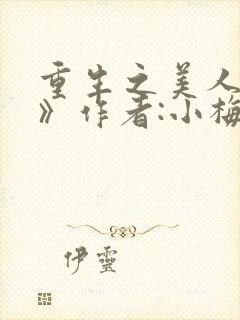 重生之美人
》作者:小梅
伊靈